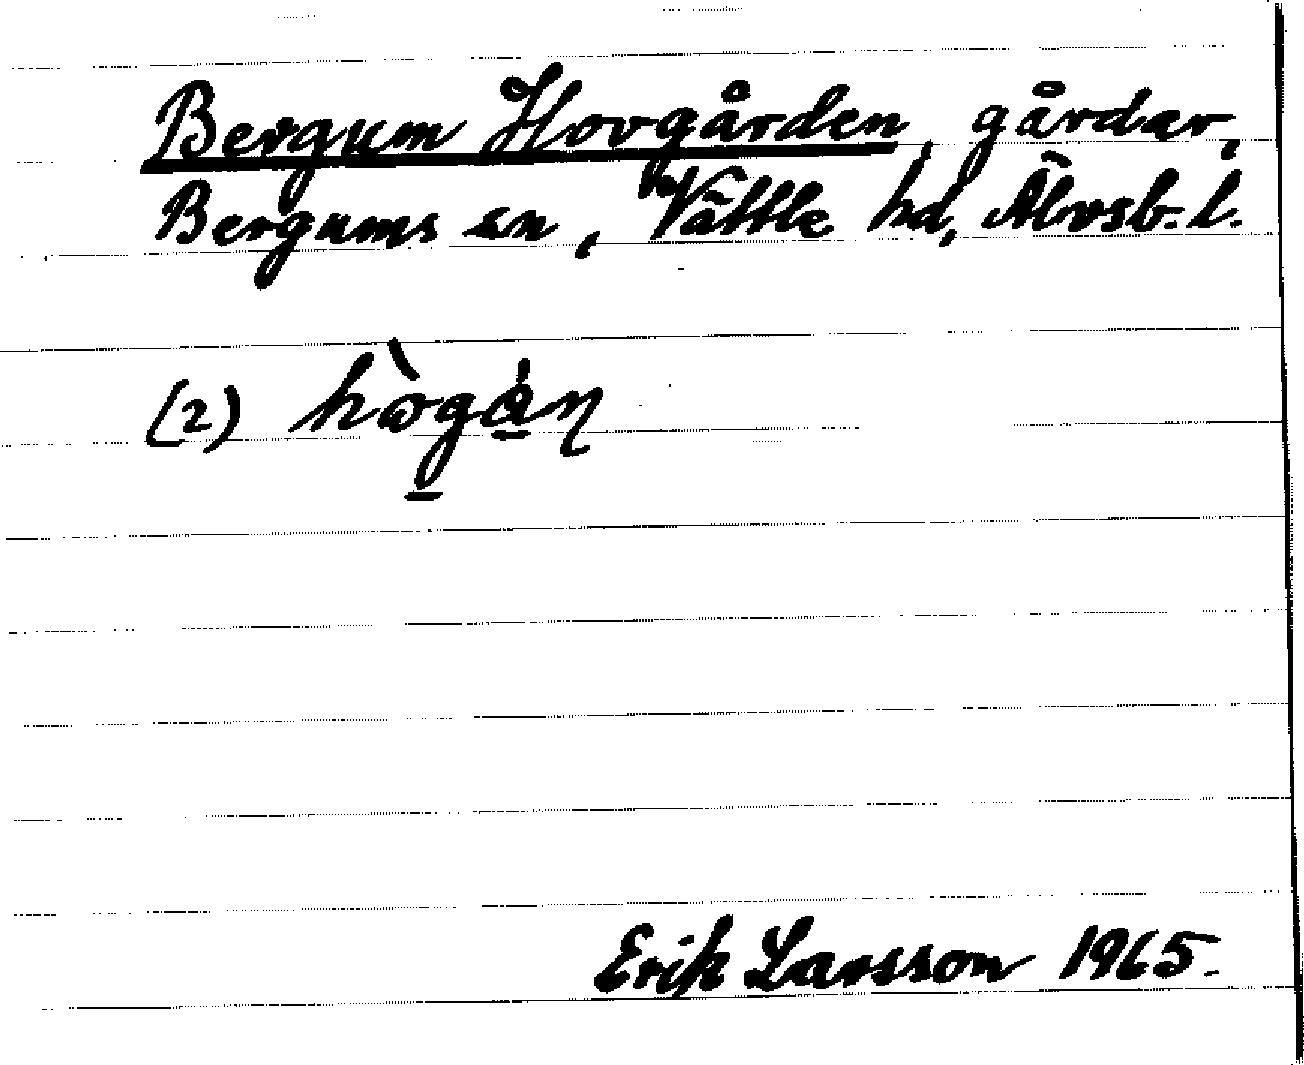 Bergum Hovgården, gårdar,
Bergums sn, Vättle hd, Älvsb. l.
(2) hògáṇ
Erik Larsson 1965.